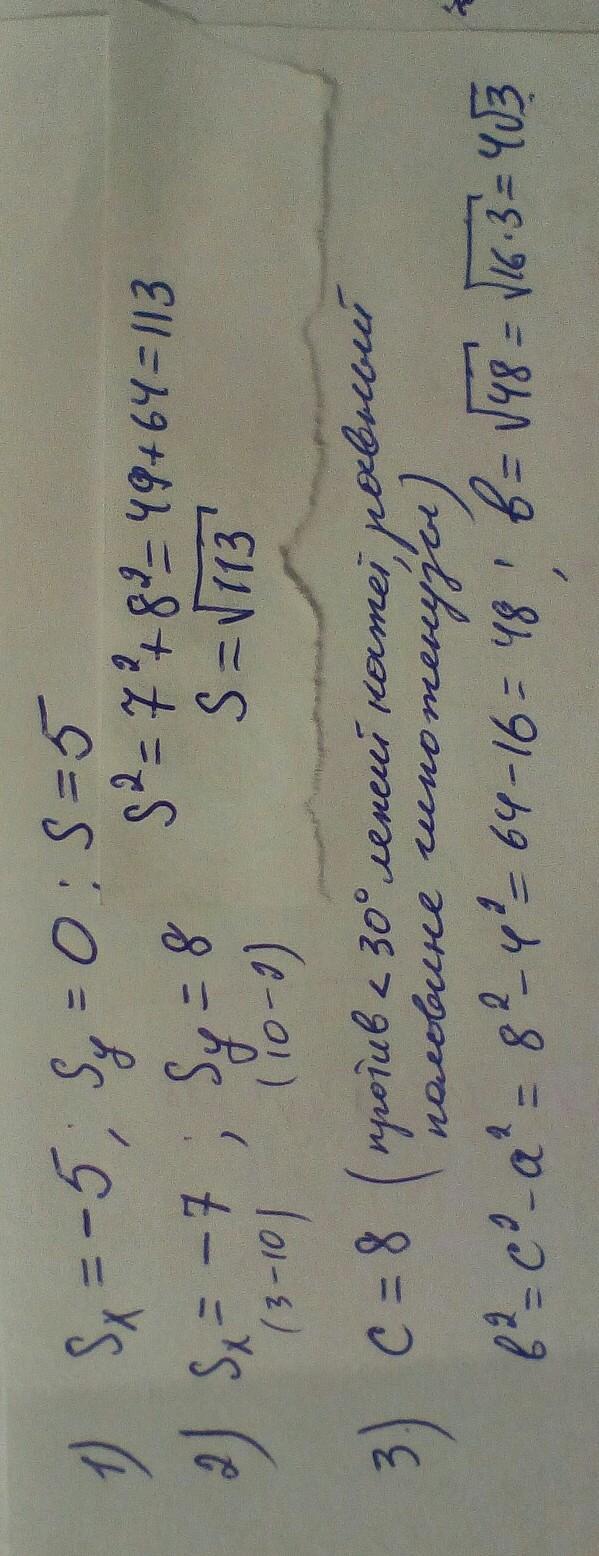 1) Sx = -5; Sy = 0; S = 5
2) Sx = -7 ; Sy = 8 S² = 7² + 8² = 49 + 64 = 113
(3-10) (10-2) S = √113
3) c = 8 (против < 30° лежит катет, равный
половине гипотенузы)
b² = c² - a² = 8² - 4² = 64 - 16 = 48; b = √48 = √16·3 = 4√3